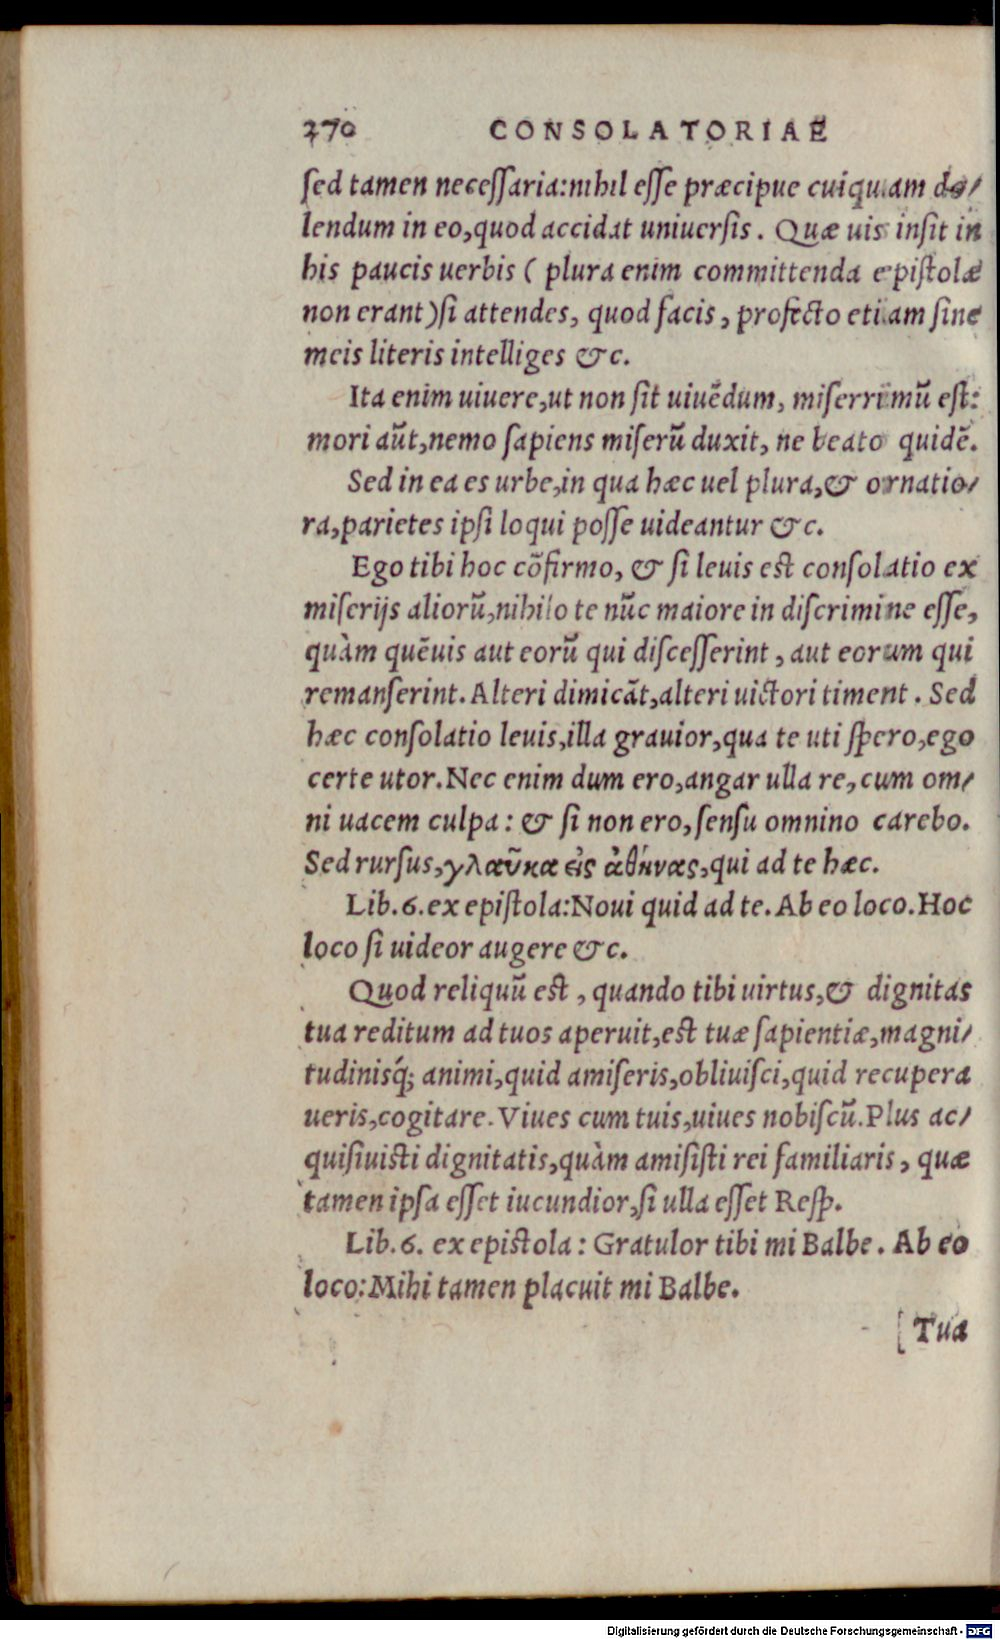 270 CONSOLATORIAE
ſed tamen neceſſaria:nihil eſſe præcipue cuiquam do/
lendum in eo,quod accidat uniuerſis. Quæ uis inſit in
his paucis uerbis ( plura enim committenda epiſtolæ
non erant)ſi attendes, quod facis, profecto etiam ſine
meis literis intelliges &c.
Ita enim uiuere,ut non ſit uiuẽdum, miſerrimũ eſt:
mori aũt,nemo ſapiens miſerũ duxit, ne beato quidẽ.
Sed in ea es urbe,in qua hæc uel plura,& ornatio/
ra,parietes ipſi loqui poſſe uideantur &c.
Ego tibi hoc cõfirmo, & ſi leuis eſt conſolatio ex
miſerijs aliorũ,nihilo te nũc maiore in diſcrimine eſſe,
quàm quẽuis aut eorũ qui diſceſſerint, aut eorum qui
remanſerint. Alteri dimicãt,alteri uictori timent. Sed
hæc conſolatio leuis,illa grauior,qua te uti ſpero,ego
certe utor. Nec enim dum ero,angar ulla re,cum om/
ni uacem culpa: & ſi non ero,ſenſu omnino carebo.
Sed rurſus,γλαῦκα εἰς ἀθήνας,qui ad te hæc.
Lib.6.ex epiſtola:Noui quid ad te. Ab eo loco. Hoc
loco ſi uideor augere &c.
Quod reliquũ eſt, quando tibi uirtus,& dignitas
tua reditum ad tuos aperuit,eſt tuæ ſapientiæ,magni/
tudinisq́; animi,quid amiſeris,obliuiſci,quid recupera
ueris,cogitare. Viues cum tuis,uiues nobiſcũ. Plus ac/
quiſiuiſti dignitatis,quàm amiſiſti rei familiaris, quæ
tamen ipſa eſſet iucundior,ſi ulla eſſet Reſp.
Lib.6. ex epiſtola: Gratulor tibi mi Balbe. Ab eo
loco: Mihi tamen placuit mi Balbe.
[Tua
Digitalisierung gefördert durch die Deutsche Forschungsgemeinschaft - DFG